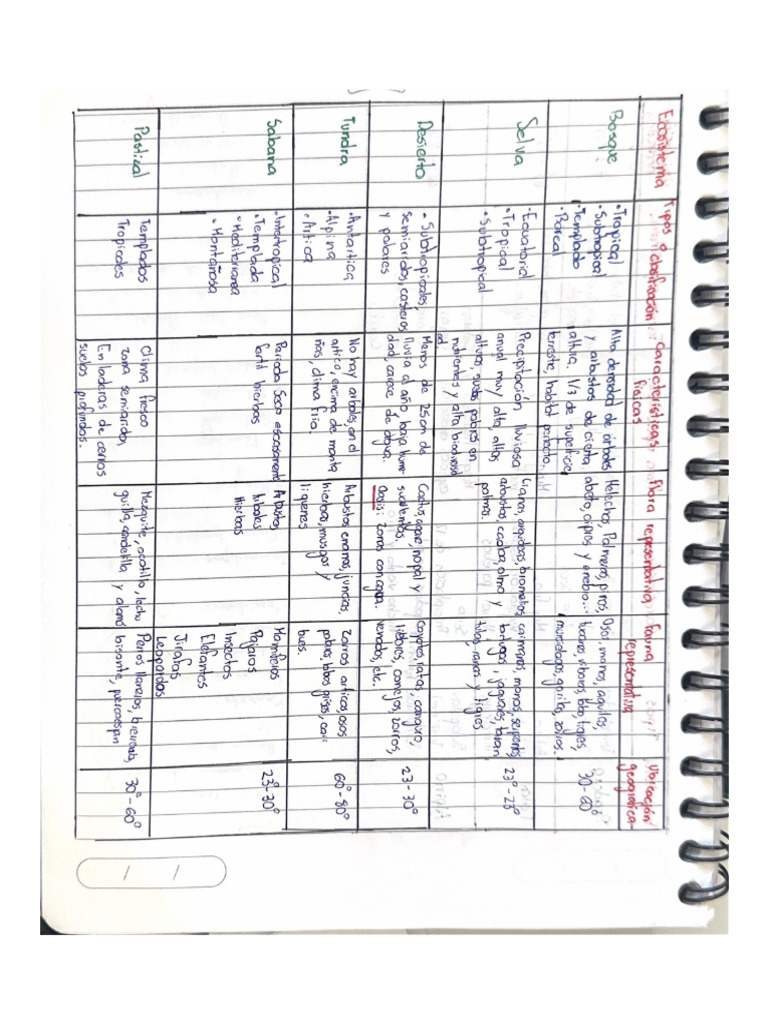 Ecosistema
Tipos o clasificación
Características físicas
Flora representativa
Fauna representativa
Ubicación geográfica
Bosque
• Tropical
• Subtropical
• Templado
• Boreal
Alta densidad de árboles
y arbustos de cierta
altura. 1/3 de superficie
terrestre, habitat perfecto.
Helechos, Palmeras, pinos,
abeto, cipres y enebro...
Osos, monos, aguilas,
tucanes, viboras, lobo,
murcielagos, gorila, zorros..
30-60°
Selva
• Ecuatorial
• Tropical
• Subtropical
Precipitación lluviosa
anual muy alta, altas
alturas, suelos pobres en
nutrientes y alta biodiversid
ad.
Lianas, orquideas, bromelias
arbustos, caobas, olmo y
palma.
caimanes, monos, serpientes
tortugas, jaguares, taran
tulas, aves y tigres.
23°-23°
Desierto
• Subtropicales,
semiaridos, costeros
y polares
Menos de 25cm de
lluvia al año, baja hume-
dad, carece de agua.
Cactus, agave, nopal y
suculentas.
Oasis: zonas con agua.
Coyotes, ratas, canguro,
liebres, conejos, zorros,
venados, etc.
23-30°
Tundra
• Antartica
• Alpina
• Artica
No hay arboles, en el
artico, encima de monta
ñas, clima frio.
Arbustos enanos, juncias,
hierbas, musgos y
liquenes
Zorros articos, osos
polares, lobos grises, cari
bues.
60°-80°
Sabana
• Intertropical
• Templada
• Mediterranea
• Montañosa
Periodo seco escasamente
fertil hierbas
Arbustos
Arboles
Hierbas
Mamiferos
Pajaros
Insectos
Elefantes
Jirafas
Leopardos
23°-30°
Pastizal
Templados
Tropicales
Clima fresco
zona semiarida,
En laderas de cerros
suelos profundos.
Mezquite, ocotillo, lechu
guilla, candelilla y alamo
Perros llaneros, berrendo,
bisonte, puercoespin
30°-60°